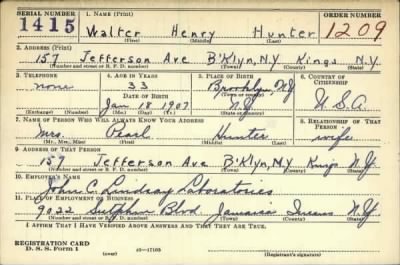 SERIAL NUMBER 1. NAME (Print) ORDER NUMBER
1415 Walter Henry Hunter 1209
(First) (Middle) (Last)
2. ADDRESS (Print)
157 Jefferson Ave B'Klyn, N.Y Kings N.Y.
(Number and street or R. F. D. number) (Town) (County) (State)
3. TELEPHONE 4. AGE IN YEARS 5. PLACE OF BIRTH 6. COUNTRY OF CITIZENSHIP
none 33 Brooklyn, N.Y
DATE OF BIRTH (Town or county)
Jan 18 1907 N.Y U.S.A.
(Exchange) (Number) (Mo.) (Day) (Yr.) (State or country)
7. NAME OF PERSON WHO WILL ALWAYS KNOW YOUR ADDRESS 8. RELATIONSHIP OF THAT PERSON
Mrs. Pearl Hunter wife
(Mr., Mrs., Miss) (First) (Middle) (Last)
9. ADDRESS OF THAT PERSON
157 Jefferson Ave B'Klyn, N.Y Kings N.Y.
(Number and street or R. F. D. number) (Town) (County) (State)
10. EMPLOYER'S NAME
John C. Lindsay Laboratories
11. PLACE OF EMPLOYMENT OR BUSINESS
9022 Sutphin Blvd Jamaica Queens N.Y.
(Number and street or R. F. D. number) (Town) (County) (State)
I AFFIRM THAT I HAVE VERIFIED ABOVE ANSWERS AND THAT THEY ARE TRUE.
REGISTRATION CARD
D. S. S. Form 1 (over) 16—17105 (Registrant's signature)